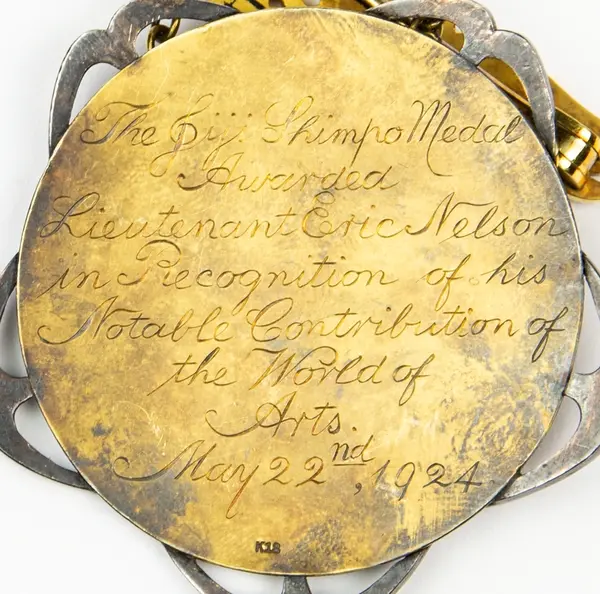 The Jiji Shimpo Medal
Awarded
Lieutenant Eric Nelson
in Recognition of his
Notable Contribution of
the World of
Arts.
May 22nd, 1924
K18